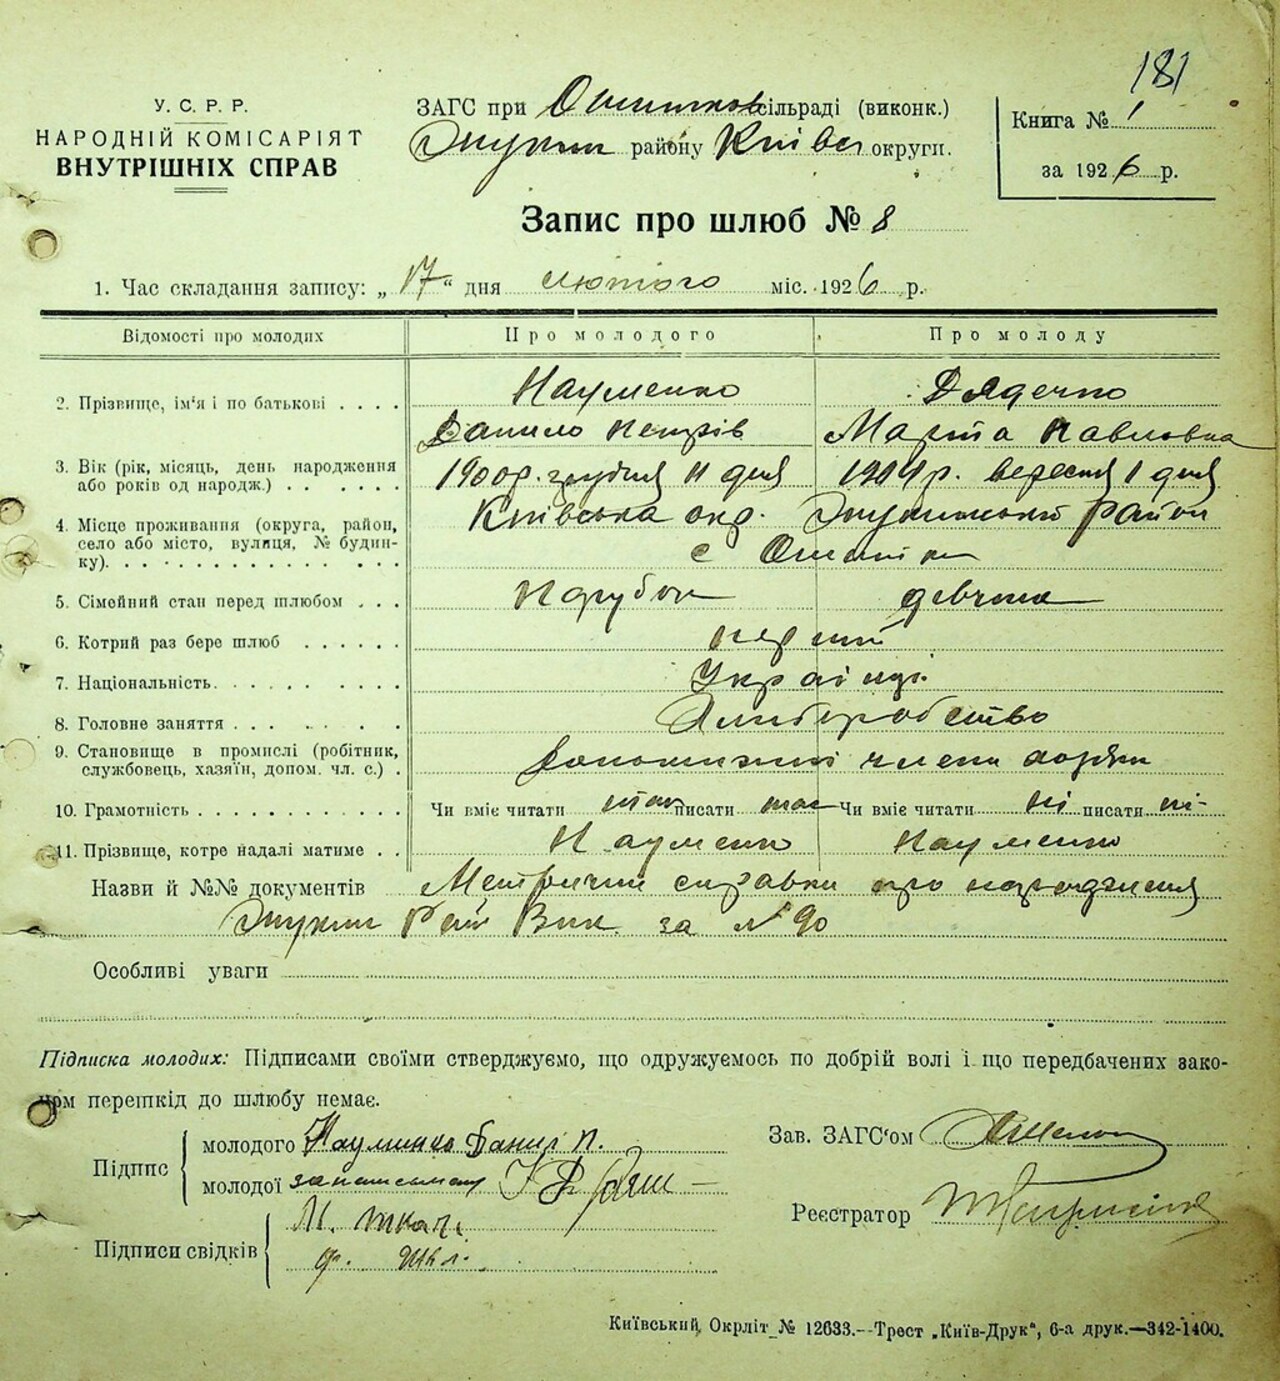 181
У. С. Р. Р.
НАРОДНІЙ КОМІСАРІЯТ
ВНУТРІШНІХ СПРАВ
ЗАГС при сільраді (виконк.)
району Київс округи.
Книга № 1
за 1926 р.
Запис про шлюб № 8
1. Час складання запису: „17" дня лютого міс. 1926 р.
Відомості про молодих Про молодого Про молоду
2. Прізвище, ім'я і по батькові . . . . Науменко Дядечко
Данило Петрів Марта Павловна
3. Вік (рік, місяць, день народження 1900р. грудня 11 дня вересня 1 дня
або років од народж.) . . . . . .
4. Місце проживання (округа, район, Київська окр. район
село або місто, вулиця, № будин- с
ку). . . . . . . . . . . . . . . .
5. Сімейний стан перед шлюбом . . . Парубок дівчина
6. Котрий раз бере шлюб . . . . . . перший
7. Національність. . . . . . . . . . Українці
8. Головне заняття . . . . . . . Хліборобство
9. Становище в промислі (робітник, члени
службовець, хазяїн, допом. чл. с.) .
10. Грамотність . . . . . . . . . . . . Чи вміє читати так писати так Чи вміє читати ні писати ні
11. Прізвище, котре надалі матиме . . Науменко Науменко
Назви й №№ документів Метричні справки про народження
Рай Вик. за № 90
Особливі уваги
Підписка молодих: Підписами своїми стверджуємо, що одружуємось по добрій волі і що передбачених зако-
ном перешкід до шлюбу немає.
Підпис
молодого Науменко Данил П.
молодої
Підписи свідків
М. Ткач
Зав. ЗАГС'ом
Реєстратор
Київський Окрліт № 12633.—Трест „Київ-Друк", 6-а друк.—342-1400.